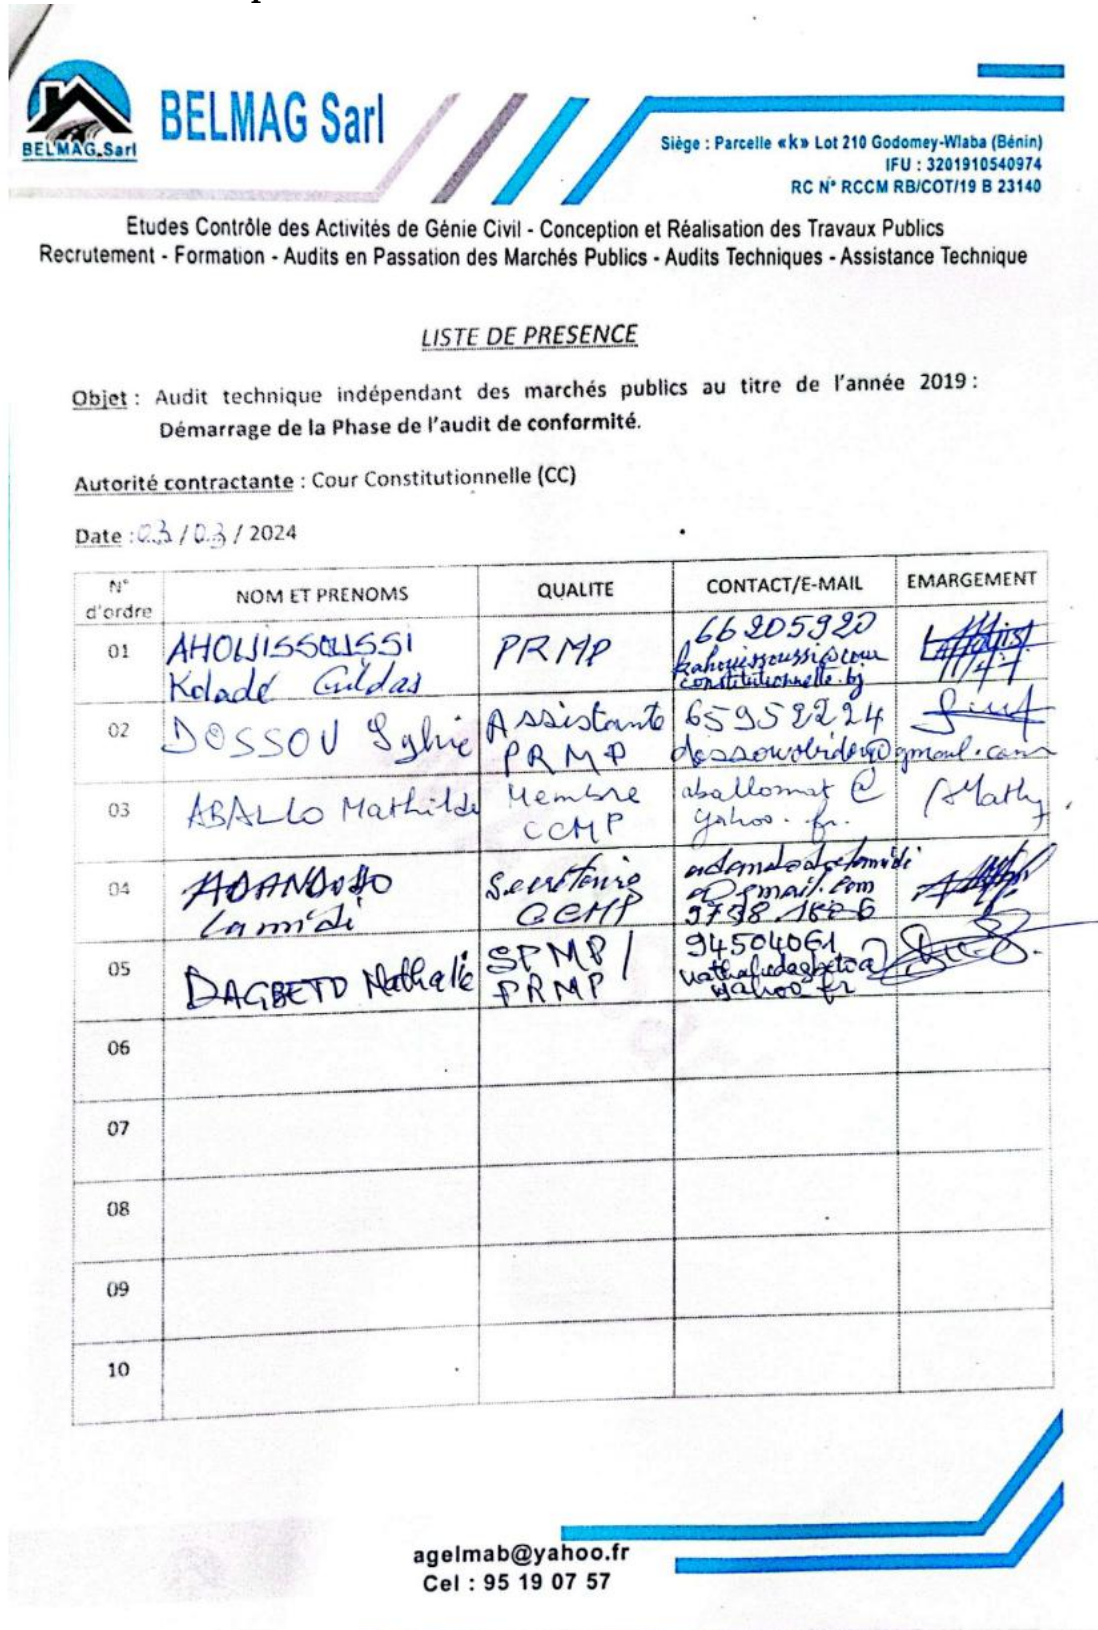 BELMAG.Sarl
BELMAG Sarl
Siège : Parcelle «k» Lot 210 Godomey-Wlaba (Bénin)
IFU : 3201910540974
RC N° RCCM RB/COT/19 B 23140
Etudes Contrôle des Activités de Génie Civil - Conception et Réalisation des Travaux Publics
Recrutement - Formation - Audits en Passation des Marchés Publics - Audits Techniques - Assistance Technique
LISTE DE PRESENCE
Objet : Audit technique indépendant des marchés publics au titre de l'année 2019 :
Démarrage de la Phase de l'audit de conformité.
Autorité contractante : Cour Constitutionnelle (CC)
Date : 03 / 03 / 2024
N° d'ordre NOM ET PRENOMS QUALITE CONTACT/E-MAIL EMARGEMENT
01 AHOUISSOUSSI Koladé Gildas PRMP 66205920 kahouissoussi@cour constitutionnelle.bj
02 DOSSOU Sylvie Assistante PRMP 65952224 @gmail.com
03 ABALLO Mathilde Membre CCMP aballomat@ yahoo.fr. Mathy
04 Lamidi Secrétaire CCMP @gmail.com
05 DAGBETO Nathalie SPMP/ PRMP 94504061 nathaliedagbeto@ yahoo.fr
06
07
08
09
10
agelmab@yahoo.fr
Cel : 95 19 07 57